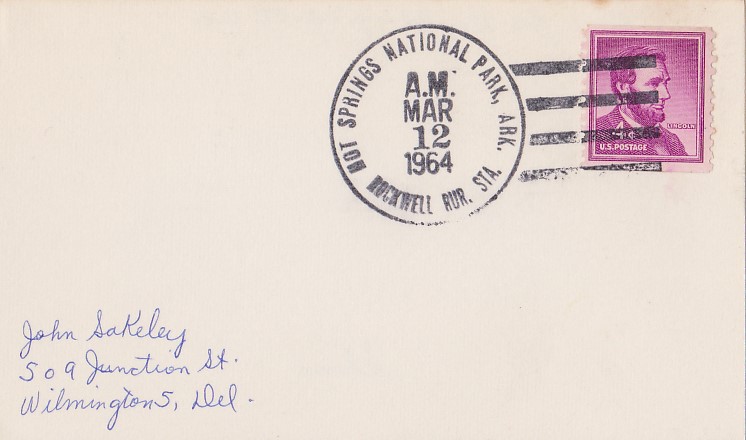 HOT SPRINGS NATIONAL PARK, ARK.
A.M.
MAR
12
1964
ROCKWELL RUR. STA.
LINCOLN
U.S. POSTAGE
John Sakeley
509 Junction St.
Wilmington 5, Del.